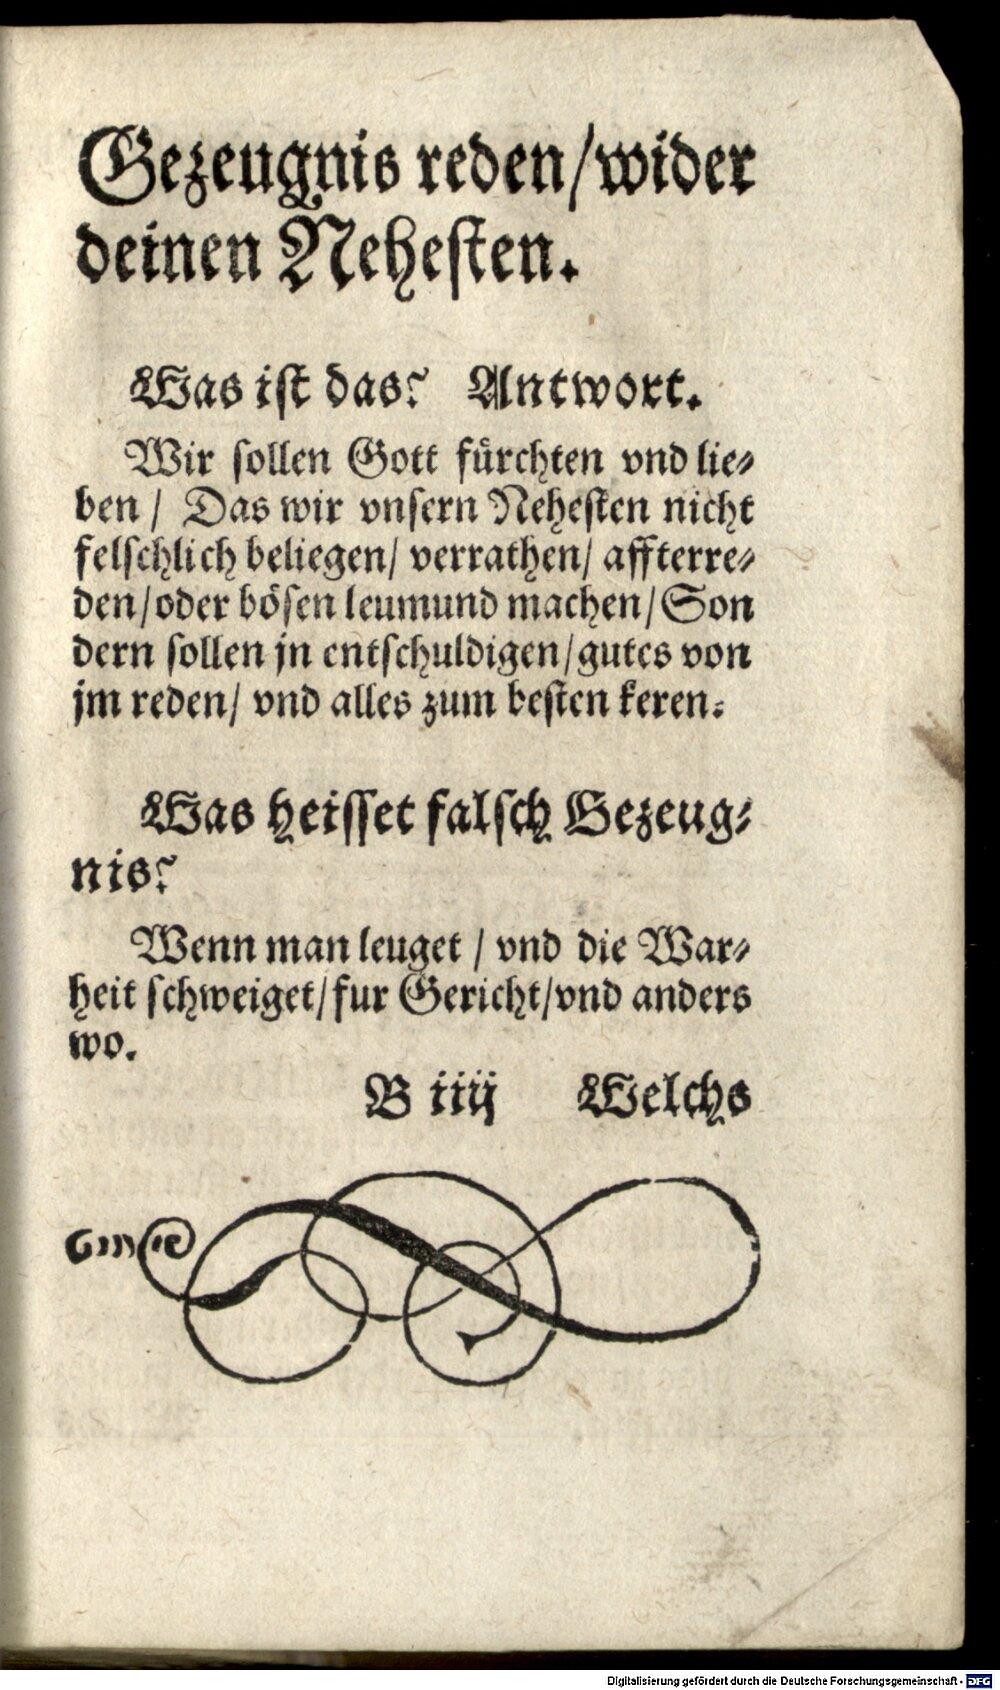 Gezeugnis reden/wider
deinen Nehesten.
Was ist das? Antwort.
Wir sollen Gott fürchten vnd lie-
ben / Das wir vnsern Nehesten nicht
felschlich beliegen/ verrathen/ affterre-
den/oder bösen leumund machen/Son
dern sollen jn entschuldigen/gutes von
jm reden/ vnd alles zum besten keren.
Was heisset falsch Gezeug-
nis?
Wenn man leuget / vnd die War-
heit schweiget/fur Gericht/vnd anders
wo.
B iiij Welchs
Digitalisierung gefördert durch die Deutsche Forschungsgemeinschaft - DFG